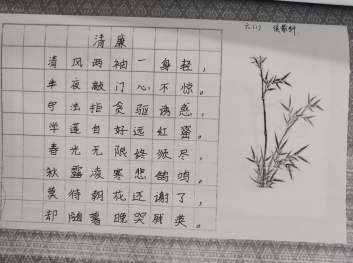 六(1)
清廉
清风两袖一身轻，
半夜敲门心不惊。
守法拒贪驱诱惑，
学莲自好远红蜜。
春光无限终须尽，
秋露凌寒悲鸽鸣。
莫待朝花还谢了，
却随莺晚哭残英。